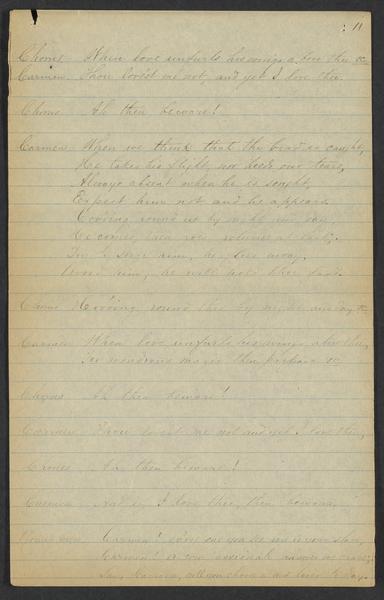 11
Chorus When love unfurls his wings above thee &c
Carmen Thou lovest me not, and yet I love thee.
Chorus Ah then beware!
Carmen When we think that the bird is caught,
He takes his flight, nor heeds our tears,
Always absent when he is sought,
Expect him not and he appears.
Hovering round us by night and day,
He comes, then goes, returns at last;
Try to seize him, he flies away,
Avoid him, he will hold thee fast.
Chorus Hovering round thee by night and day &c
Carmen When love unfurls his wings above thee,
&c
Chorus Ah then beware!
Carmen Thou lovest me not and yet I love thee,
Chorus Ah then beware!
Carmen And if I love thee, then beware,
Carmen! every one you see is your slave,
Carmen!
Say, Carmen, will you